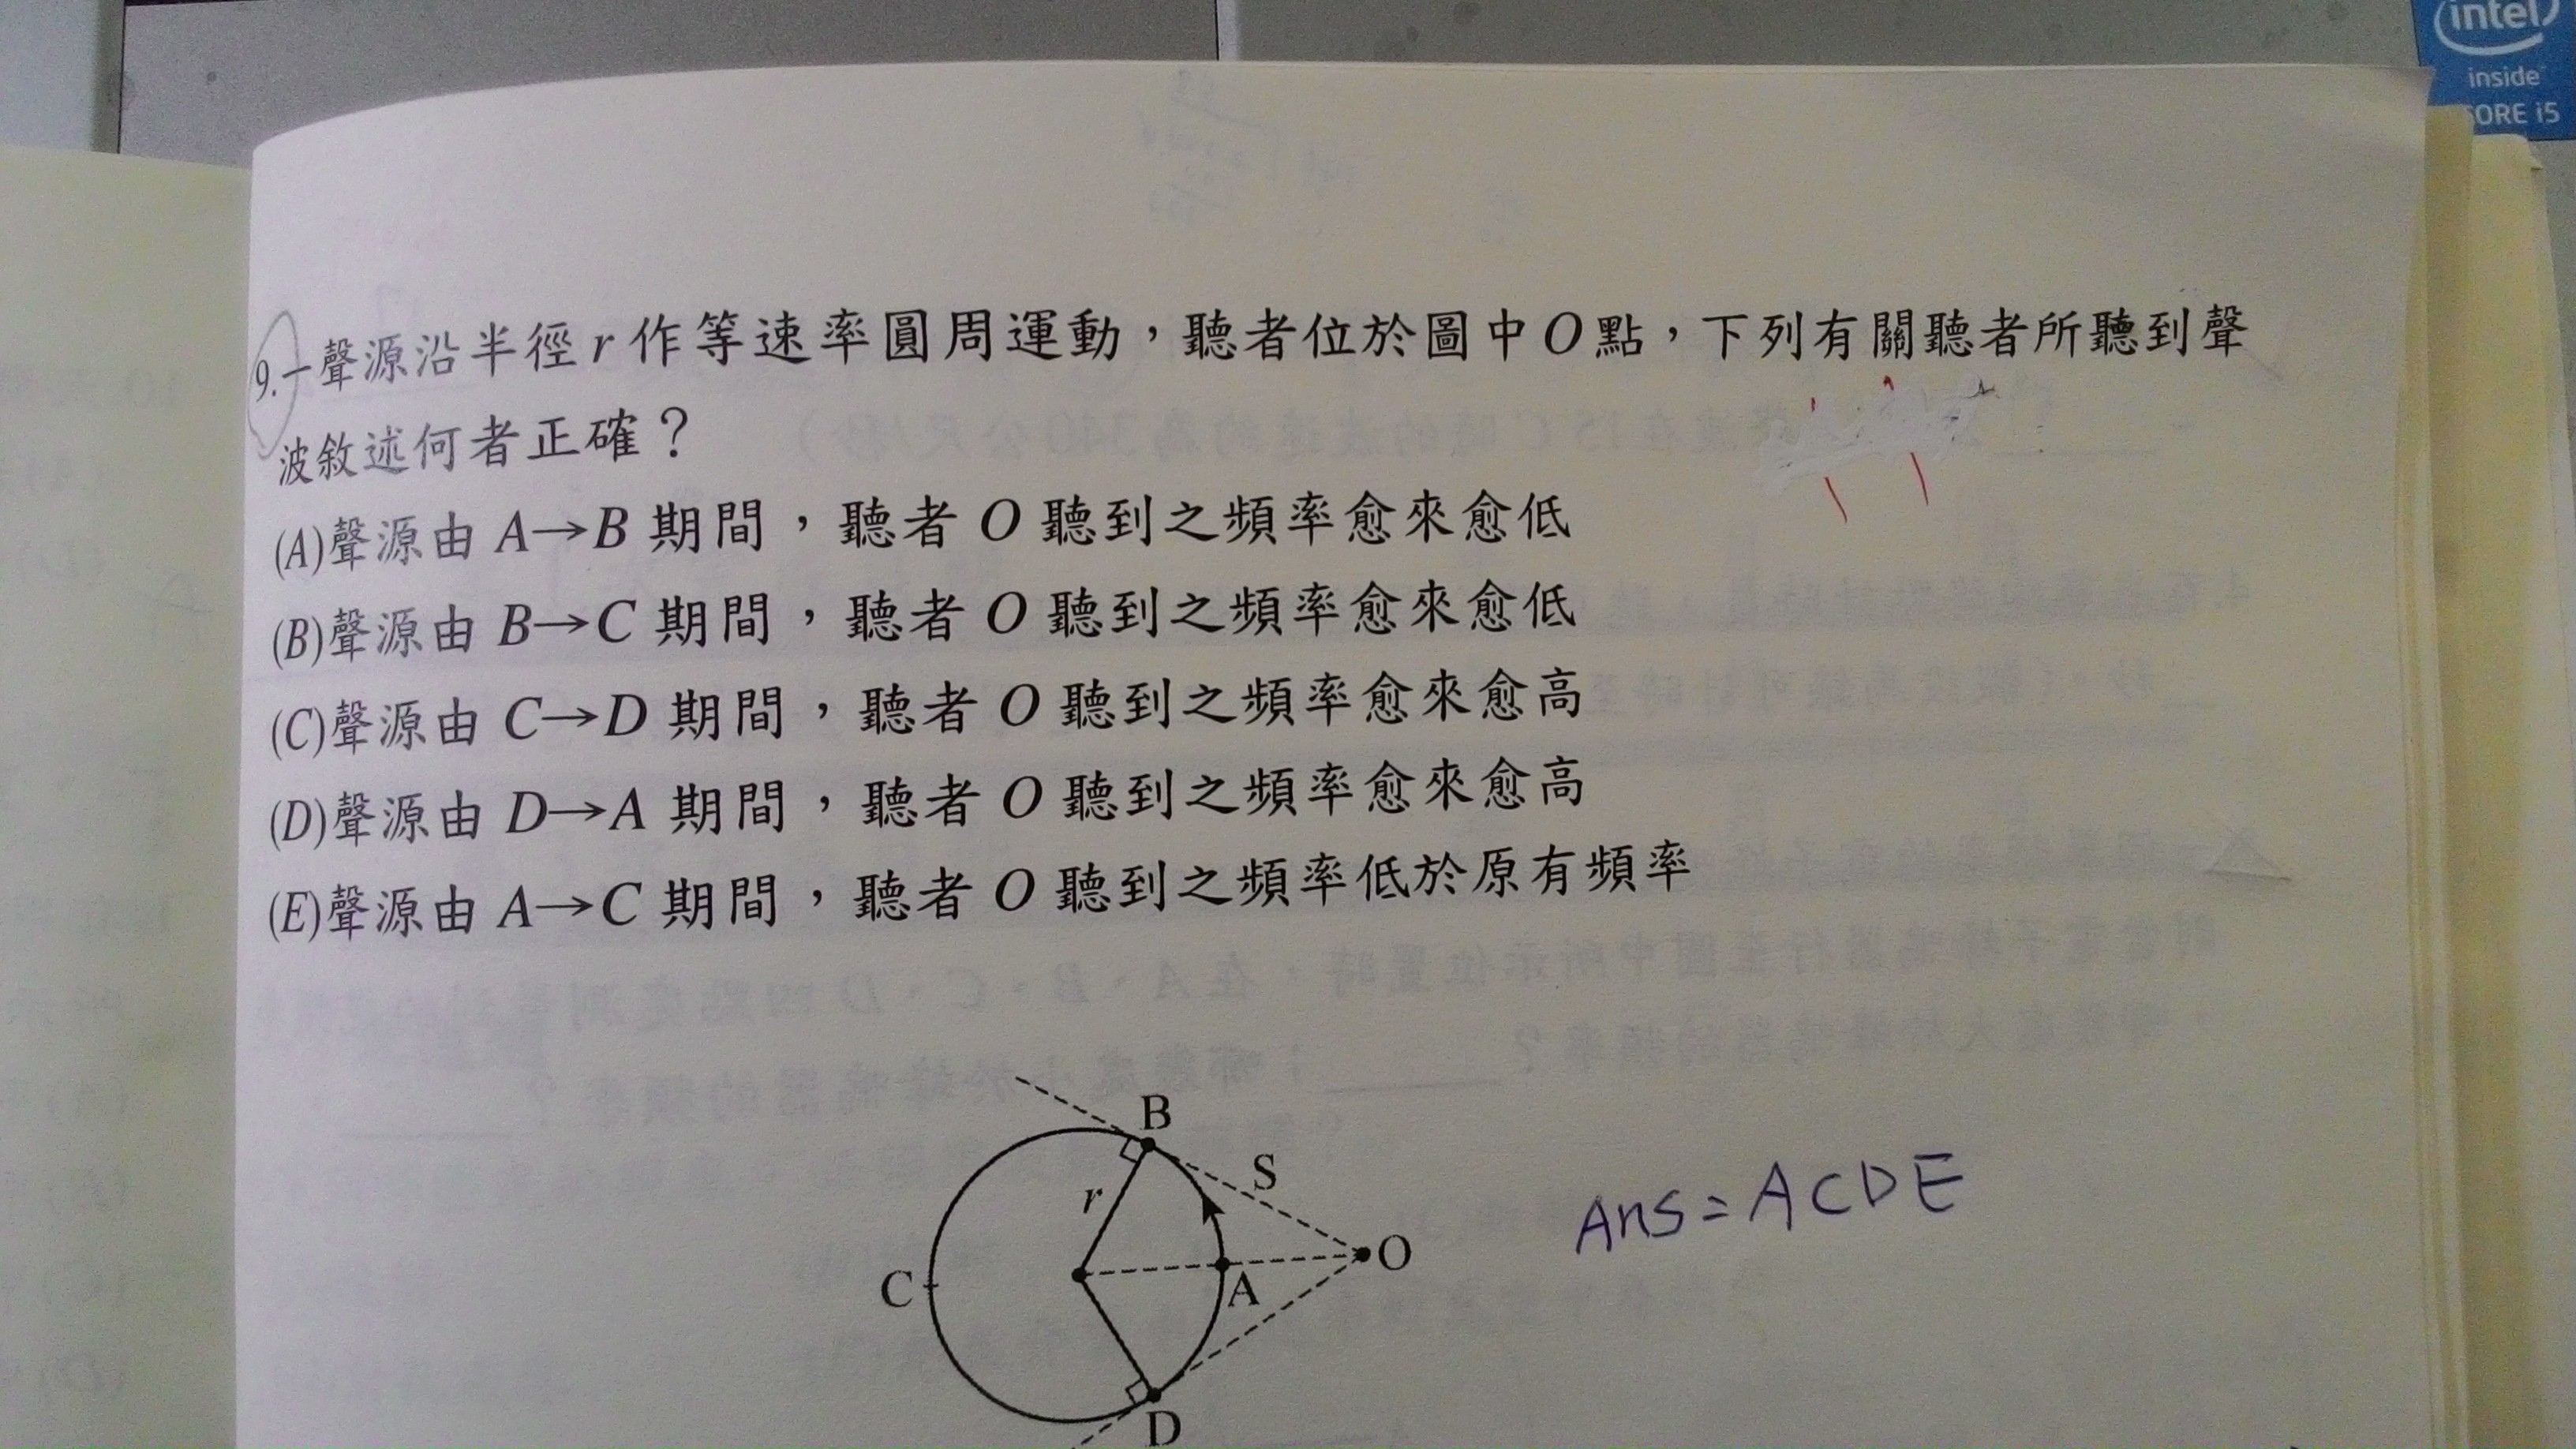 intel
inside
CORE i5
9.一聲源沿半徑r作等速率圓周運動，聽者位於圖中O點，下列有關聽者所聽到聲
波敘述何者正確？
(A)聲源由 A→B 期間，聽者 O 聽到之頻率愈來愈低
(B)聲源由 B→C 期間，聽者 O 聽到之頻率愈來愈低
(C)聲源由 C→D 期間，聽者 O 聽到之頻率愈來愈高
(D)聲源由 D→A 期間，聽者 O 聽到之頻率愈來愈高
(E)聲源由 A→C 期間，聽者 O 聽到之頻率低於原有頻率
B
S
r
O
C
A
D
Ans = ACDE